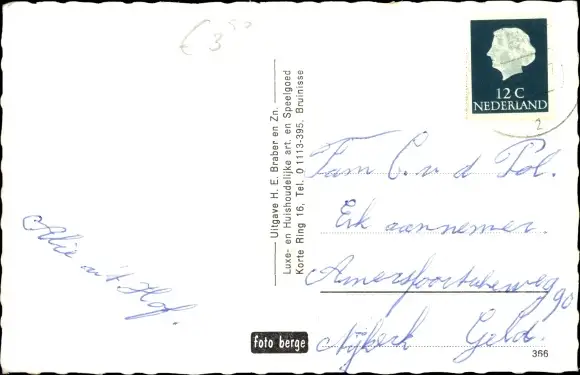 € 3,90
12 C
NEDERLAND
2
Uitgave H. E. Braber en Zn.
Luxe- en Huishoudelijke art. en Speelgoed
Korte Ring 16, Tel. 01113-395, Bruinisse
Fam C. v d Pol.
Erk aannemer.
Amersfoortseweg 90
Nijkerk Geld.
Alie uit Hof.
foto berge
366